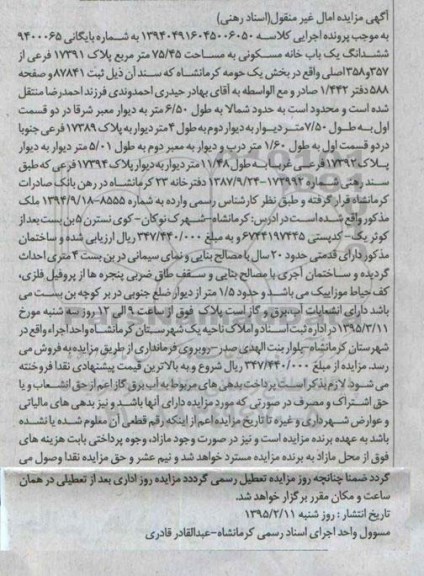 آگهی مزایده امال غیر منقول(اسناد رهنی)
به موجب پرونده اجرایی کلاسه ۱۳۹۴۰۴۹۱۶۰۴۵۰۰۶۰۵۰ به شماره بایگانی ۹۴۰۰۰۶۵
ششدانگ یک باب خانه مسکونی به مساحت ۷۵/۴۵ متر مربع پلاک ۱۷۳۹۱ فرعی از
۳۵۷و۳۵۸اصلی واقع در بخش یک حومه کرمانشاه که سند آن ذیل ثبت ۸۷۸۴۱و صفحه
۵۸۸ دفتر ۱/۴۴۲ صادر و مع الواسطه به آقای بهادر حیدری احمدوندی فرزند احمدرضا منتقل
شده است و محدود است به حدود شمالا به طول ۶/۵۰ متر به دیوار معبر شرقا در دو قسمت
اول به طول ۷/۵۰متر دیوار به دیوار دوم به طول ۴ متر دیوار به پلاک ۱۷۳۸۹ فرعی جنوبا
دردو قسمت اول به طول ۱/۶۰ متر درب و دیوار به معبر دوم به طول ۵/۰۱ متر دیوار به دیوار
پلاک ۱۷۳۹۲فرعی غربا به طول ۱۱/۴۸متر دیوار به دیوار پلاک ۱۷۳۹۴فرعی که طبق
سند رهنی شماره ۱۷۳۹۹۲-۱۳۸۷/۹/۲۴ دفترخانه ۲۳ کرمانشاه در رهن بانک صادرات
کرمانشاه قرار گرفته و طبق نظر کارشناس رسمی وارده به شماره ۸۵۵۵-۱۳۹۴/۹/۱۸ ملک
مذکور واقع شده است در ادرس: کرمانشاه-شهرک نوکان-کوی نسترن ۵ بن بست بعد از
کوثر یک- کدپستی ۶۷۳۴۱۹۷۴۴۵ و به مبلغ ۳۴۷/۴۴۰/۰۰۰ ریال ارزیابی شده و ساختمان
مذکور دارای قدمتی حدود ۲۰ سال با مصالح بنایی و نمای سیمانی در بن بست ۴ متری احداث
گردیده و ساختمان آجری با مصالح بنایی و سقف طاق ضربی پنجره ها از پروفیل فلزی،
کف حیاط موزاییک می باشد و حدود ۱/۵ متر از دیوار ضلع جنوبی در بر کوچه بن بست می
باشد دارای انشعابات آب،برق و گاز است پلاک فوق از ساعت ۹ الی ۱۲ روز سه شنبه مورخ
۱۳۹۵/۳/۱۱ در اداره ثبت اسناد و املاک ناحیه یک شهرستان کرمانشاه واحد اجراء واقع در
شهرستان کرمانشاه-بلوار بنت الهدی صدر-روبروی فرمانداری از طریق مزایده به فروش می
رسد. مزایده از مبلغ ۳۴۷/۴۴۰/۰۰۰ ریال شروع و به بالاترین قیمت پیشنهادی نقدا فروخته
می شود لازم بذکر است پرداخت بدهی های مربوط به آب برق گاز اعم از حق انشعاب و یا
حق اشتراک و مصرف در صورتی که مورد مزایده دارای آنها باشد و نیز بدهی های مالیاتی
و عوارض شهرداری و غیره تا تاریخ مزایده اعم از اینکه رقم قطعی آن معلوم شده یا نشده
باشد به عهده برنده مزایده است و نیز در صورت وجود مازاد، وجوه پرداختی بابت هزینه های
فوق از محل مازاد به برنده مزایده مسترد خواهد شد و نیم عشر و حق مزایده نقدا وصول می
گردد ضمنا چنانچه روز مزایده تعطیل رسمی گرددد مزایده روز اداری بعد از تعطیلی در همان
ساعت و مکان مقرر برگزار خواهد شد.
تاریخ انتشار : روز شنبه ۱۳۹۵/۲/۱۱
مسوول واحد اجرای اسناد رسمی کرمانشاه-عبدالقادر قادری